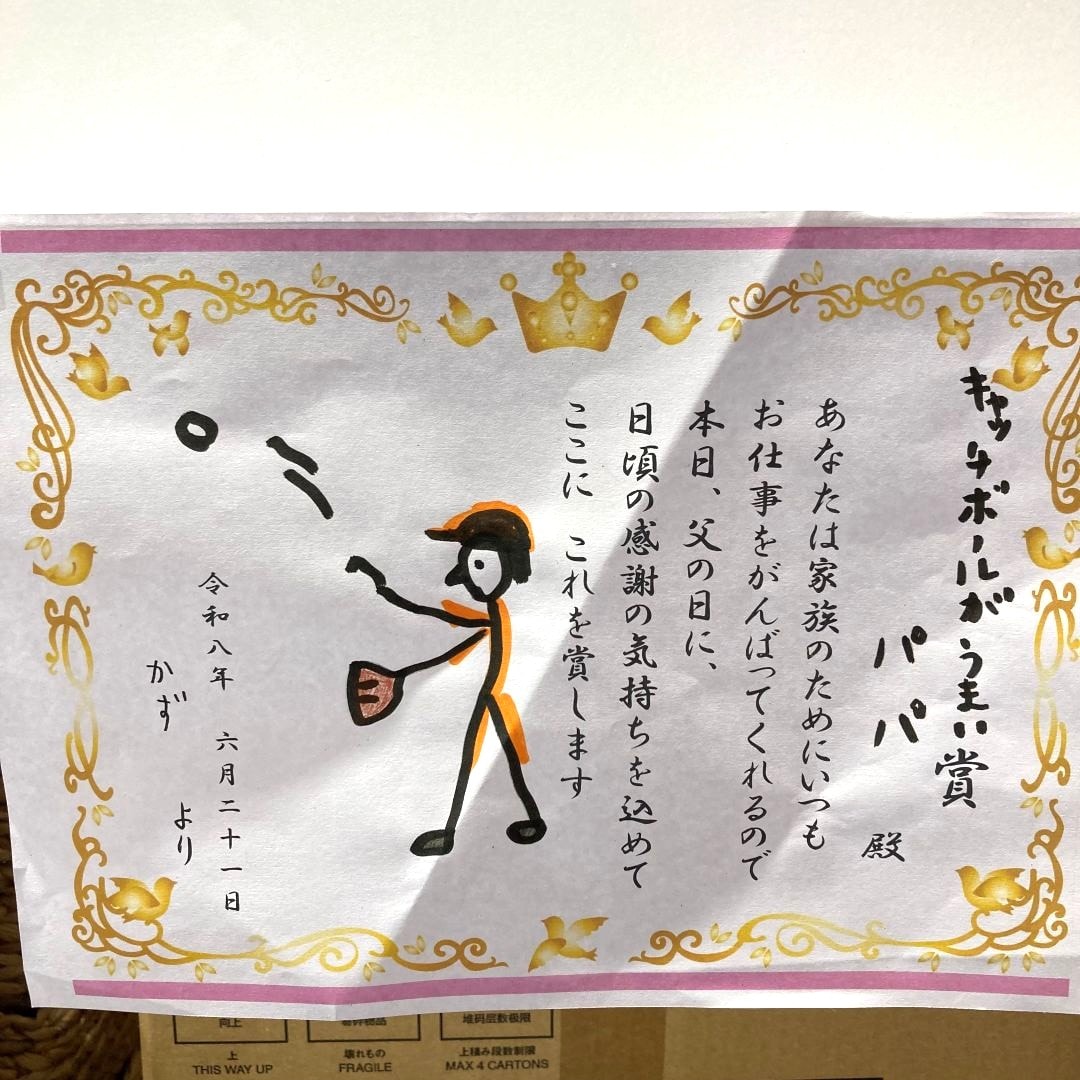 キャッチボールがうまい賞
パパ 殿
あなたは家族のためにいつも
お仕事をがんばってくれるので
本日、父の日に、
日頃の感謝の気持ちを込めて
ここに これを賞します
令和八年 六月二十一日
かず より
向上
上
THIS WAY UP
壊れもの
FRAGILE
堆码层数极限
上積み段数制限
MAX 4 CARTONS